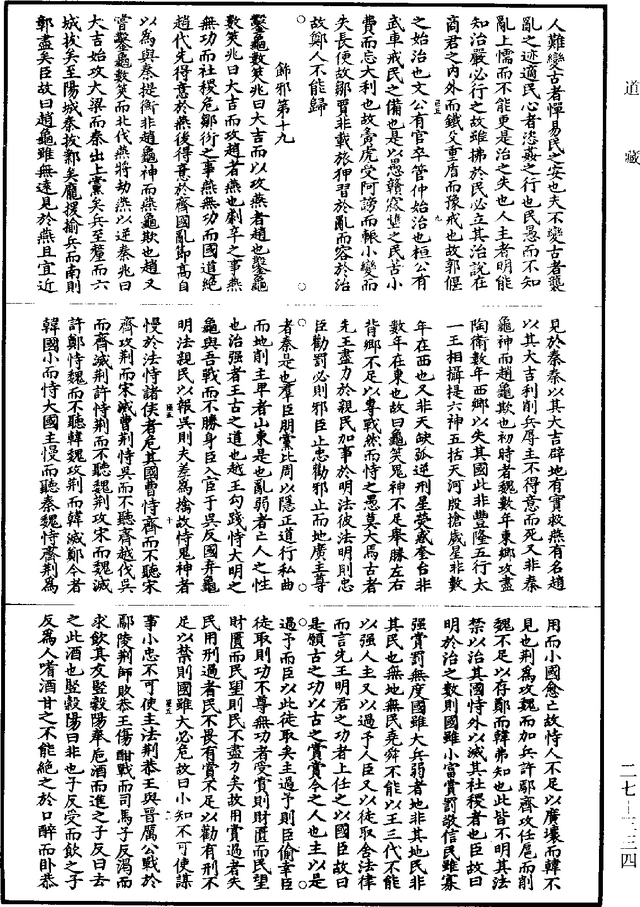 道藏
人難變古者憚易民之安也夫不變古者襲
亂之迹適民心者恣姦之行也民愚而不知
亂上懦而不能更是治之失也人主者明能
知治嚴必行之故雖拂於民必立其治說在
商君之內外而鐵殳重盾而豫戒也故郭偃
之始治也文公有官卒管仲始治也桓公有
武車戒民之備也是以愚贛窳墮之民苦小
費而忘大利也故夤虎受阿謗而輾小變而
失長便故鄒賈非載旅狎習於亂而容於治
故鄭人不能歸
飾邪第十九
鑿龜數筴兆曰大吉而以攻燕者趙也鑿龜
數筴兆曰大吉而攻趙者燕也劇辛之事燕
無功而社稷危鄒衍之事燕無功而國道絕
趙代先得意於燕後得意於齊國亂節高自
以為與秦提衡非趙龜神而燕龜欺也趙又
嘗鑿龜數筴而北伐燕將劫燕以逆秦兆曰
大吉始攻大梁而秦出上黨矣兵至釐而六
城拔矣至陽城秦拔鄴矣龐援揄兵而南則
鄣盡矣臣故曰趙龜雖無遠見於燕且宜近
見於秦秦以其大吉辟地有實救燕有名趙
以其大吉利削兵辱主不得意而死又非秦
龜神而趙龜欺也初時者魏數年東鄉攻盡
陶衛數年西鄉以失其國此非豐隆五行太
一王相攝提六神五括天河殷搶歲星非數
年在西也又非天缺弧逆刑星熒惑奎台非
數年在東也故曰龜筴鬼神不足舉勝左右
背鄉不足以專戰然而恃之愚莫大焉古者
先王盡力於親民加事於明法彼法明則忠
臣勸罰必則邪臣止忠勸邪止而地廣主尊
者秦是也羣臣朋黨比周以隱正道行私曲
而地削主卑者山東是也亂弱者亡人之性
也治强者王古之道也越王勾踐恃大明之
龜與吾戰而不勝身臣入宦于吳反國弃龜
明法親民以報吳則夫差為擒故恃鬼神者
慢於法恃諸侯者危其國曹恃齊而不聽宋
齊攻荆而宋滅曹荆恃吳而不聽齊越伐吳
而齊滅荆許恃荆而不聽魏荆攻宋而魏滅
許鄭恃魏而不聽韓魏攻荆而韓滅鄭今者
韓國小而恃大國主慢而聽秦魏恃齊荆為
用而小國愈亡故恃人不足以廣壤而韓不
見也荆為攻魏而加兵許鄢齊攻任扈而削
魏不足以存鄭而韓弗知也此皆不明其法
禁以治其國恃外以滅其社稷者也臣故曰
明於治之數則國雖小富賞罰敬信民雖寡
强賞罰無度國雖大兵弱者地非其地民非
其民也無地無民堯舜不能以王三代不能
以强人主又以過予人臣又以徒取舍法律
而言先王明君之功者上任之以國臣故曰
是願古之功以古之賞賞今之人也主以是
過予而臣以此徒取矣主過予則臣偷幸臣
徒取則功不尊無功者受賞則財匱而民望
財匱而民望則民不盡力矣故用賞過者失
民用刑過者民不畏有賞不足以勸有刑不
足以禁則國雖大必危故曰小知不可使謀
事小忠不可使主法荆恭王與晉厲公戰於
鄢陵荆師敗恭王傷酣戰而司馬子反渴而
求飲其友豎穀陽奉巵酒而進之子反曰去
之此酒也豎穀陽曰非也子反受而飲之子
反為人嗜酒甘之不能絕之於口醉而卧恭
二七—三三四